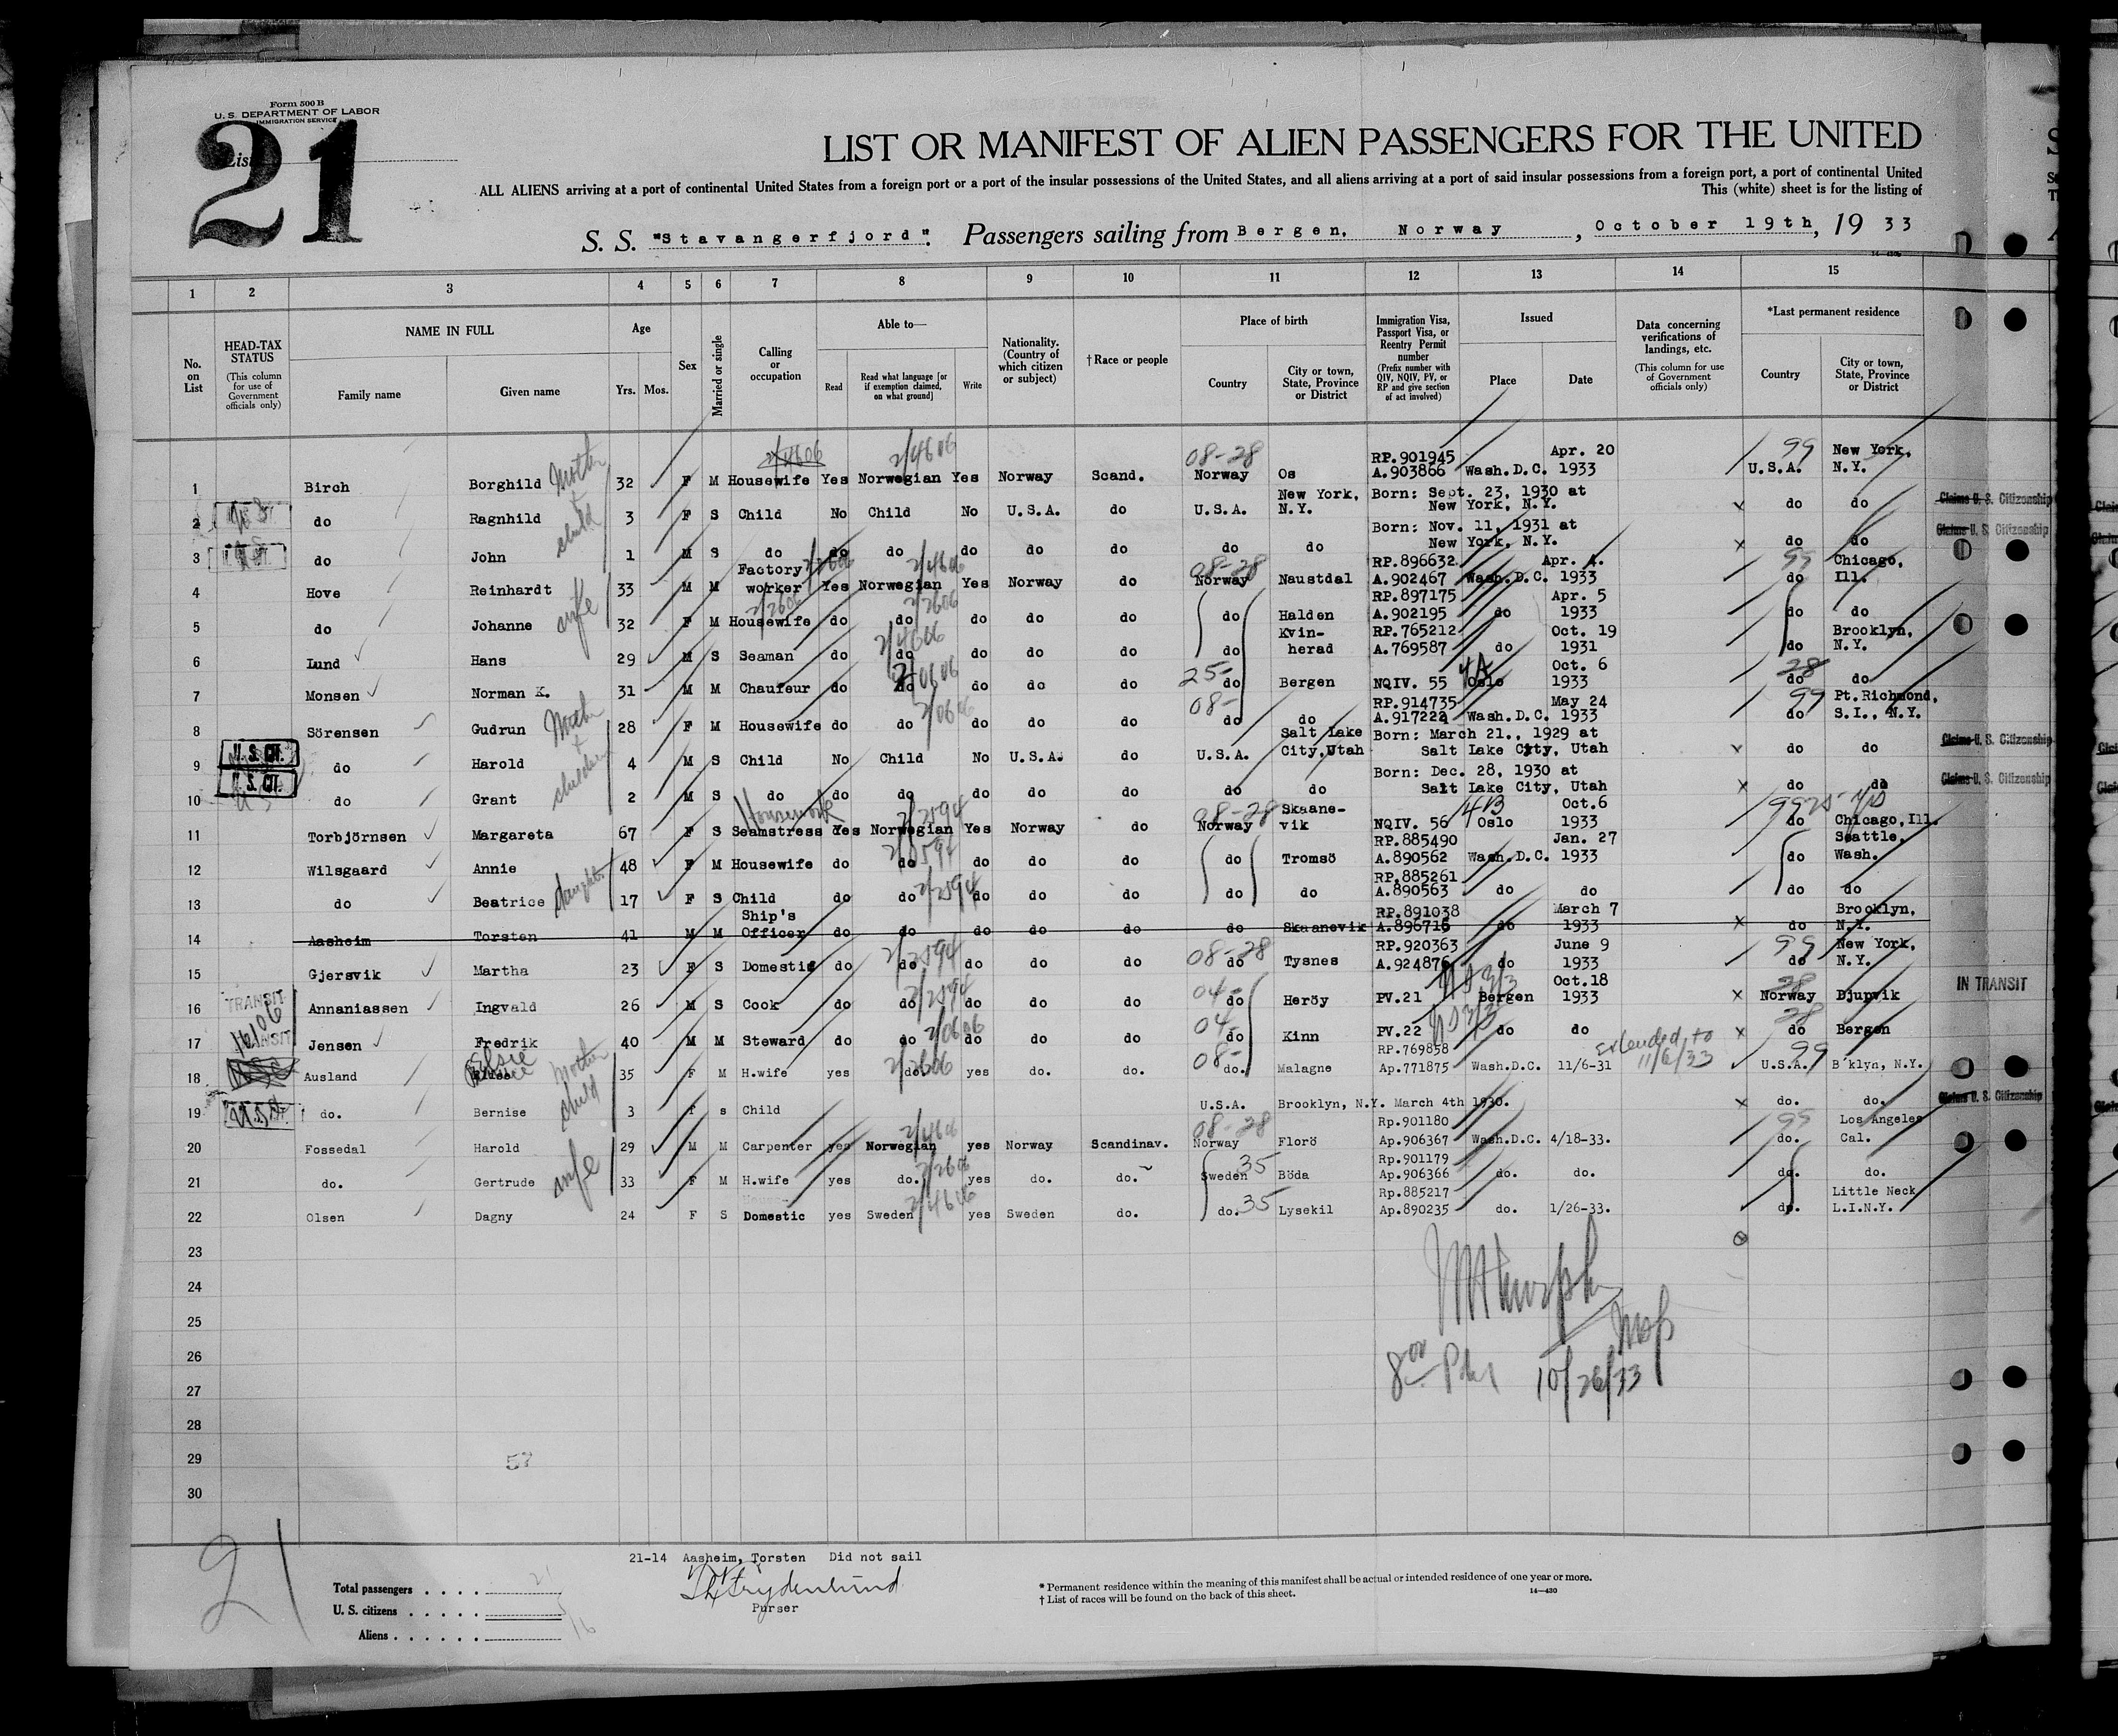 Form 500 B
U. S. DEPARTMENT OF LABOR
IMMIGRATION SERVICE
List
21
LIST OR MANIFEST OF ALIEN PASSENGERS FOR THE UNITED
ALL ALIENS arriving at a port of continental United States from a foreign port or a port of the insular possessions of the United States, and all aliens arriving at a port of said insular possessions from a foreign port, a port of continental United
This (white) sheet is for the listing of
S. S. "Stavangerfjord". Passengers sailing from Bergen, Norway, October 19th, 19 33
1 2 3 4 5 6 7 8 9 10 11 12 13 14 15
No. on List
HEAD-TAX STATUS (This column for use of Government officials only)
NAME IN FULL Family name Given name
Age Yrs. Mos.
Sex
Married or single
Calling or occupation
Able to— Read Read what language [or if exemption claimed, on what ground] Write
Nationality. (Country of which citizen or subject)
†Race or people
Place of birth Country City or town, State, Province or District
Immigration Visa, Passport Visa, or Reentry Permit number (Prefix number with QIV, NQIV, PV, or RP and give section of act involved)
Issued Place Date
Data concerning verifications of landings, etc. (This column for use of Government officials only)
*Last permanent residence Country City or town, State, Province or District
1 Birch Borghild Mother 32 F M Housewife Yes Norwegian Yes Norway Scand. 08-28 Norway Os RP.901945 A.903866 Wash.D.C. Apr. 20 1933 99 U.S.A. New York, N.Y.
2 do Ragnhild child 3 F S Child No Child No U.S.A. do U.S.A. New York, N.Y. Born: Sept. 23, 1930 at New York, N.Y. x do do Claims U. S. Citizenship
3 do John 1 M S do do do do do do do do Born: Nov. 11, 1931 at New York, N.Y. x do do Claims U. S. Citizenship
4 Hove Reinhardt 33 M M Factory worker Yes Norwegian Yes Norway do 08-28 Norway Naustdal RP.896632 A.902467 Wash.D.C. Apr. 4. 1933 99 do Chicago, Ill.
5 do Johanne wife 32 F M Housewife do do do do do do Halden RP.897175 A.902195 do Apr. 5 1933 do do
6 Lund Hans 29 M S Seaman do do do do do do Kvinherad RP.765212 A.769587 do Oct. 19 1931 do Brooklyn, N.Y.
7 Monsen Norman K. 31 M M Chaufeur do do do do do 25- do Bergen NQIV. 55 4A Oslo Oct. 6 1933 28 do do
8 Sörensen Gudrun Mother 28 F M Housewife do do do do do 08- do do RP.914735 A.917222 Wash.D.C. May 24 1933 99 do Pt.Richmond, S.I., N.Y.
9 U.S. CIT. do Harold children 4 M S Child No Child No U.S.A. do U.S.A. Salt Lake City,Utah Born: March 21., 1929 at Salt Lake City, Utah x do do Claims U. S. Citizenship
10 U.S. CIT. do Grant 2 M S do do do do do do do do Born: Dec. 28, 1930 at Salt Lake City, Utah x do do Claims U. S. Citizenship
11 Torbjörnsen Margareta 67 F S Housework Seamstress Yes Norwegian Yes Norway do 08-28 Norway Skaanevik NQIV. 56 4B Oslo Oct.6 1933 99 do Chicago,Ill.
12 Wilsgaard Annie 48 F M Housewife do do do do do do Tromsö RP.885490 A.890562 Wash.D.C. Jan. 27 1933 do Seattle, Wash.
13 do Beatrice daughter 17 F S Child do do do do do do do RP.885261 A.890563 do do do do
14 Aasheim Torsten 41 M M Ship's Officer do do do do do do Skaanevik RP.891038 A.896715 do March 7 1933 x do Brooklyn, N.Y.
15 Gjersvik Martha 23 F S Domestic do do do do do 08-28 do Tysnes RP.920363 A.924876 do June 9 1933 99 do New York, N.Y.
16 TRANSIT Annaniassen Ingvald 26 M S Cook do do do do do 04- do Heröy PV.21 Bergen Oct.18 1933 x 28 Norway Djupvik IN TRANSIT
17 TRANSIT Jensen Fredrik 40 M M Steward do do do do do 04- do Kinn PV.22 do do x 28 do Bergen
18 Ausland Elsie Mother 35 F M H.wife yes do. yes do. do. 08- do. Malagne RP.769858 Ap.771875 Wash.D.C. 11/6-31 extended to 11/6/33 99 U.S.A. B'klyn, N.Y.
19 do. Bernise child 3 f s Child U.S.A. Brooklyn, N.Y. March 4th 1930. x do. do. Claims U. S. Citizenship
20 Fossedal Harold 29 M M Carpenter yes Norwegian yes Norway Scandinav. 08-28 Norway Florö Rp.901180 Ap.906367 Wash.D.C. 4/18-33. 99 do. Los Angeles Cal.
21 do. Gertrude wife 33 F M H.wife yes do. yes do. do. Sweden 35 Böda Rp.901179 Ap.906366 do. do. do. do.
22 Olsen Dagny 24 F S Domestic yes Sweden yes Sweden do. do. 35 Lysekil Rp.885217 Ap.890235 do. 1/26-33. do. Little Neck L.I.N.Y.
23
24
25
26
27
28
29
30
57
10/26/33
21
21-14 Aasheim, Torsten Did not sail
Purser
Total passengers
U. S. citizens
Aliens
* Permanent residence within the meaning of this manifest shall be actual or intended residence of one year or more.
† List of races will be found on the back of this sheet.
14—430